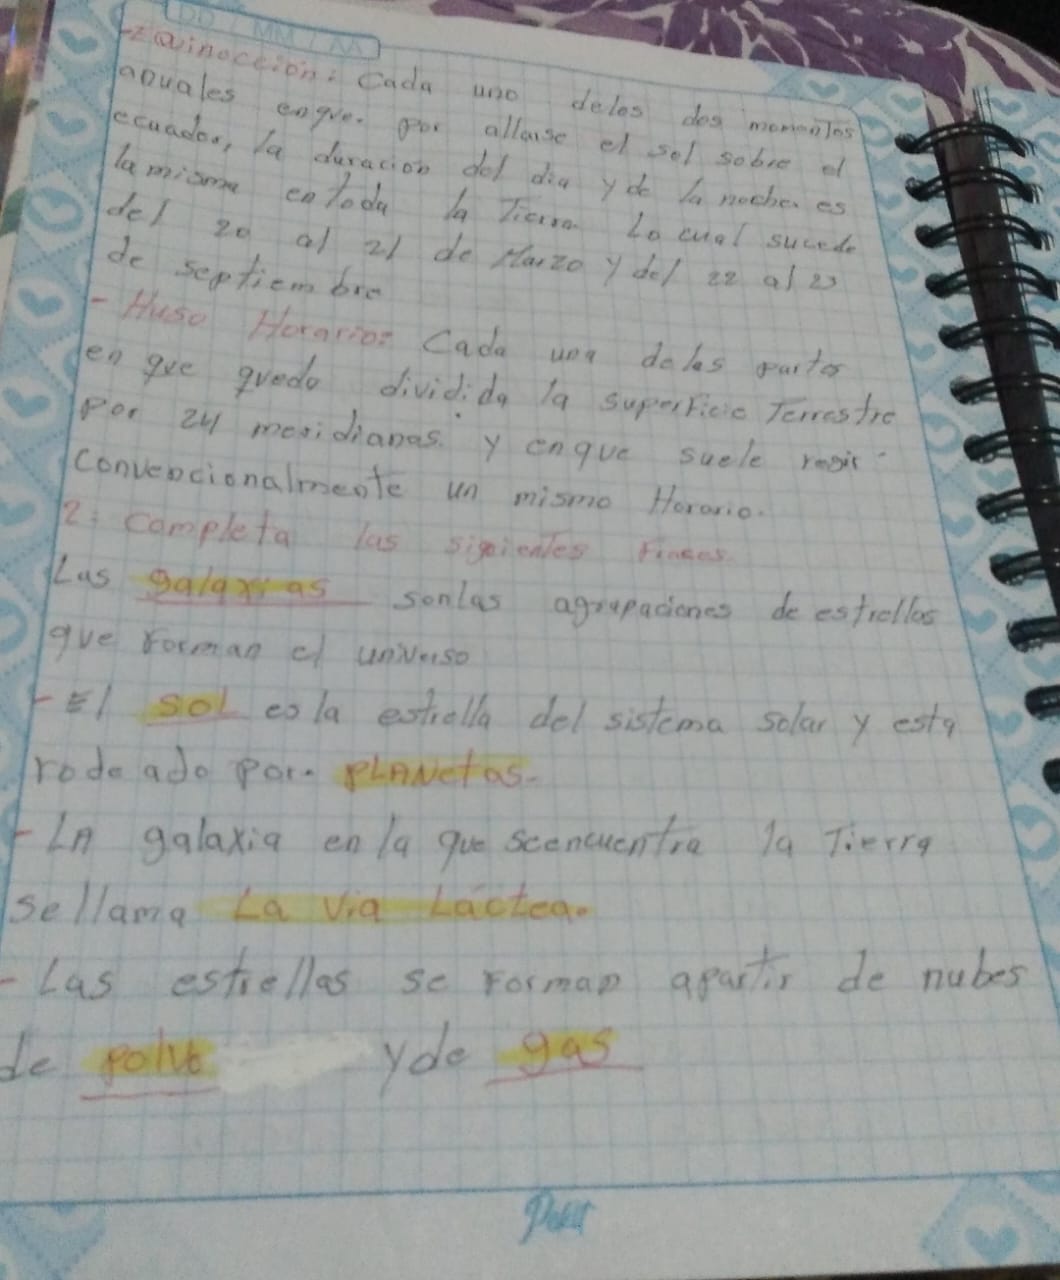 DD / MM / AA
-Equinoccion: Cada uno delos dos momentos
anuales enque. por allarse el sol sobre el
ecuador, la duracion del dia y de la noche. es
la misma en toda la Tierra. Lo cual sucede
del 20 al 21 de Marzo y del 22 al 23
de septiembre
- Huso Horario: Cada una delas partes
en que queda dividida la superficie Terrestre
por 24 meridianas. y enque suele regir
convencionalmente un mismo Horario.
2: completa las siguientes Frases
Las galaxias sonlas agrupaciones de estrellas
que Forman el universo
- El sol es la estrella del sistema solar y esta
rodeado por. PLANetas.
- LA galaxia en la que seencuentra la Tierra
sellama La Via Láctea.
- Las estrellas se Forman apartir de nubes
de polvo y de gas